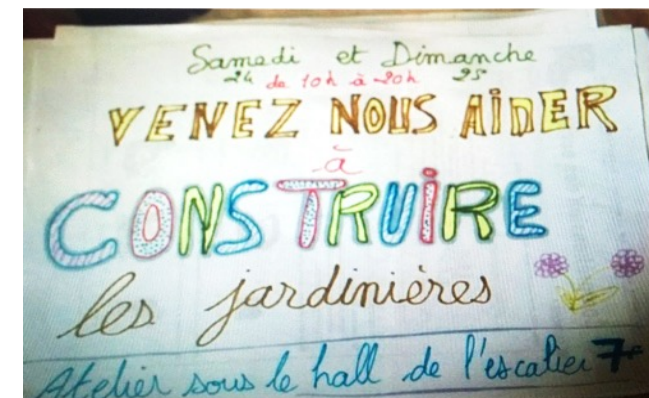 Samedi et Dimanche
24 de 10h à 20h 25
VENEZ NOUS AIDER
à
CONSTRUIRE
les jardinières
Atelier sous le hall de l'escalier 7